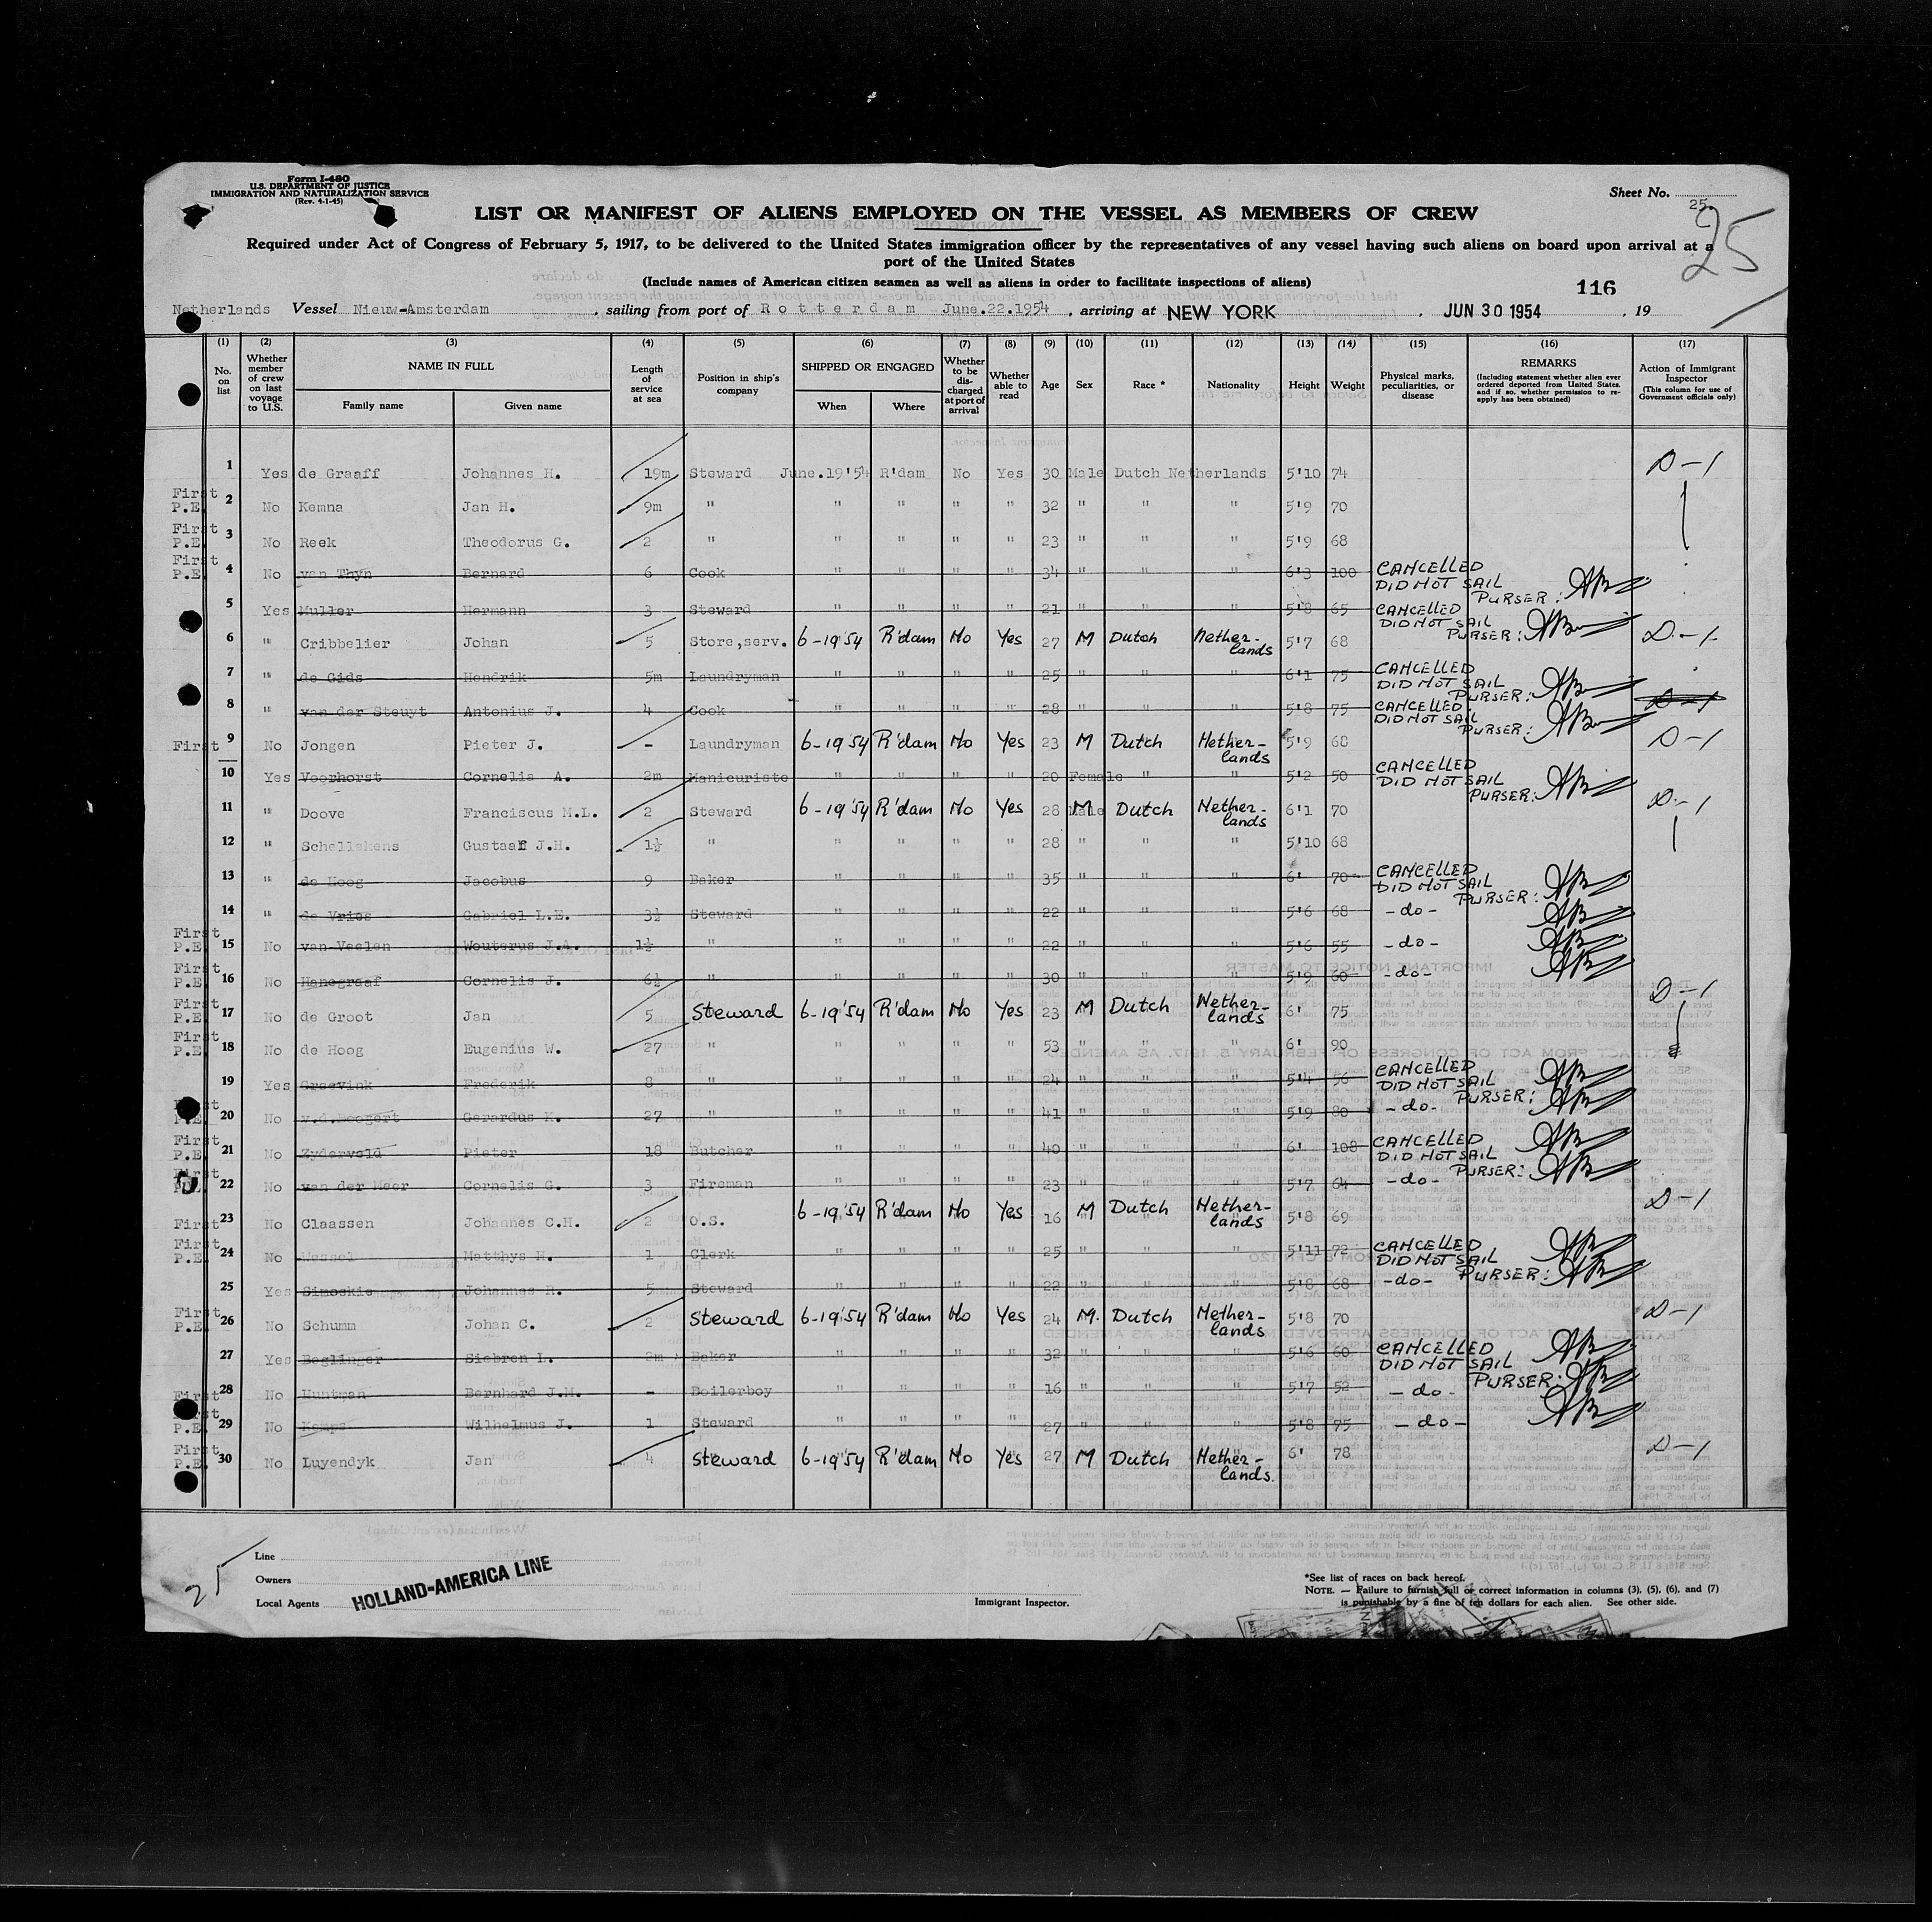 Form I-480
U.S. DEPARTMENT OF JUSTICE
IMMIGRATION AND NATURALIZATION SERVICE
(Rev. 4-1-45)
Sheet No.
25.
25
LIST OR MANIFEST OF ALIENS EMPLOYED ON THE VESSEL AS MEMBERS OF CREW
Required under Act of Congress of February 5, 1917, to be delivered to the United States immigration officer by the representatives of any vessel having such aliens on board upon arrival at a
port of the United States
(Include names of American citizen seamen as well as aliens in order to facilitate inspections of aliens)
116
Netherlands Vessel Nieuw-Amsterdam, sailing from port of Rotterdam June.22.1954, arriving at NEW YORK, JUN 30 1954, 19
(1) (2) (3) (4) (5) (6) (7) (8) (9) (10) (11) (12) (13) (14) (15) (16) (17)
No. on list Whether member of crew on last voyage to U.S. NAME IN FULL Family name Given name Length of service at sea Position in ship's company SHIPPED OR ENGAGED When Where Whether to be discharged at port of arrival Whether able to read Age Sex Race * Nationality Height Weight Physical marks, peculiarities, or disease REMARKS (Including statement whether alien ever ordered deported from United States, and if so, whether permission to reapply has been obtained) Action of Immigrant Inspector (This column for use of Government officials only)
1 Yes de Graaff Johannes H. 19m Steward June.19'54 R'dam No Yes 30 Male Dutch Netherlands 5'10 74 D-1
First P.E. 2 No Kemna Jan H. 9m " " " " " 32 " " " 5'9 70
First P.E. 3 No Reek Theodorus G. 2 " " " " " 23 " " " 5'9 68
First P.E. 4 No van Thyn Bernard 6 Cook " " " " 34 " " " 6'3 100 CANCELLED DID NOT SAIL PURSER:
5 Yes Muller Hermann 3 Steward " " " " 21 " " " 5'8 65 CANCELLED DID NOT SAIL PURSER:
6 " Cribbelier Johan 5 Store,serv. 6-19'54 R'dam No Yes 27 M Dutch Netherlands 5'7 68 D-1
7 " de Gids Hendrik 5m Laundryman " " " " 25 " " " 6'1 75 CANCELLED DID NOT SAIL PURSER:
8 " van der Steuyt Antonius J. 4 Cook " " " " 28 " " " 5'8 75 CANCELLED DID NOT SAIL PURSER: D-1
First 9 No Jongen Pieter J. - Laundryman 6-19'54 R'dam No Yes 23 M Dutch Netherlands 5'9 68 D-1
10 Yes Voorhorst Cornelia A. 2m Manicuriste " " " " 20 Female " " 5'2 50 CANCELLED DID NOT SAIL PURSER:
11 " Doove Franciscus M.L. 2 Steward 6-19'54 R'dam No Yes 28 M Dutch Netherlands 6'1 70 D-1
12 " Schellekens Gustaaf J.H. 1½ " " " " " 28 " " " 5'10 68
13 " de Hoog Jacobus 9 Baker " " " " 35 " " " 6' 70 CANCELLED DID NOT SAIL PURSER:
14 " de Vries Gabriel L.E. 3½ Steward " " " " 22 " " " 5'6 68 -do-
First P.E. 15 No van Veelen Wouterus J.A. 1½ " " " " " 22 " " " 5'6 55 -do-
First P.E. 16 No Hanegraaf Cornelis J. 6½ " " " " " 30 " " " 5'9 60 -do-
First P.E. 17 No de Groot Jan 5 Steward 6-19'54 R'dam No Yes 23 M Dutch Netherlands 6' 75 D-1
First P.E. 18 No de Hoog Eugenius W. 27 " " " " " 53 " " " 6' 90
19 Yes Greevink Frederik 8 " " " " " 24 " " " 5'4 56 CANCELLED DID NOT SAIL PURSER:
20 No v.d.Boogert Gerardus K. 27 " " " " " 41 " " " 5'9 80 -do-
First P.E. 21 No Zyderveld Pieter 18 Butcher " " " " 40 " " " 6' 108 CANCELLED DID NOT SAIL PURSER:
First P.E. 22 No van der Meer Cornelis G. 3 Fireman " " " " 23 " " " 5'7 64 -do-
First 23 No Claassen Johannes C.H. 2 O.S. 6-19'54 R'dam No Yes 16 M Dutch Netherlands 5'8 69 D-1
First P.E. 24 No Wessel Matthys H. 1 Clerk " " " " 25 " " " 5'11 72 CANCELLED DID NOT SAIL PURSER:
25 Yes Simoskie Johannes R. 5 Steward " " " " 22 " " " 5'8 68 -do-
First P.E. 26 No Schumm Johan C. 2 Steward 6-19'54 R'dam No Yes 24 M. Dutch Netherlands 5'8 70 D-1
27 Yes Beglinger Siebren L. 2m Baker " " " " 32 " " " 5'6 60 CANCELLED DID NOT SAIL PURSER:
First 28 No Huntman Bernhard J.M. - Boilerboy " " " " 16 " " " 5'7 52 -do-
P.E. 29 No Kemps Wilhelmus J. 1 Steward " " " " 27 " " " 5'8 75 -do-
First P.E. 30 No Luyendyk Jan 4 Steward 6-19'54 R'dam No Yes 27 M Dutch Netherlands 6' 78 D-1
25
Line
Owners
Local Agents
HOLLAND-AMERICA LINE
Immigrant Inspector.
*See list of races on back hereof.
NOTE. — Failure to furnish full or correct information in columns (3), (5), (6), and (7)
is punishable by a fine of ten dollars for each alien. See other side.